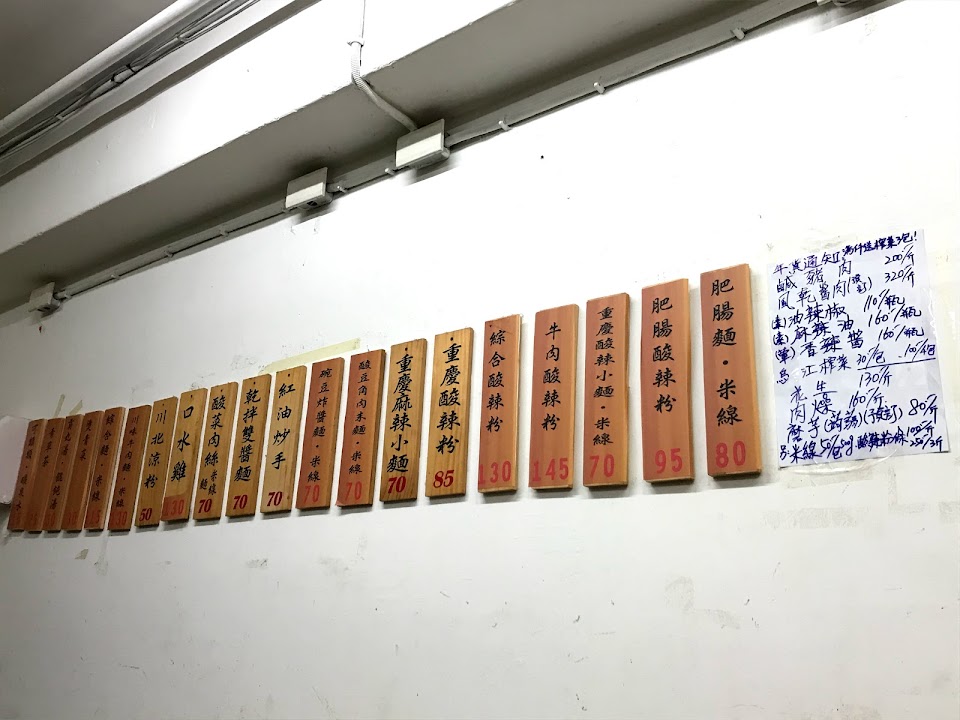 肥腸麵·米線
80
肥腸酸辣粉
95
重慶酸辣小麵·米線
70
牛肉酸辣粉
145
綜合酸辣粉
130
重慶酸辣粉
85
重慶麻辣小麵
70
酸豆角肉末麵·米線
70
豌豆炸醬麵·米線
70
紅油炒手
70
乾拌雙醬麵
70
酸菜肉絲麵米線
70
口水雞
130
川北涼粉
50
川味牛肉麵·米線
130
綜合麵·米線
年貨通知 滿仟送榨菜3包!
鹹豬肉 200/斤
風乾醬肉 320/斤
油辣椒 110/瓶
麻辣油 160/瓶
香辣醬 160/瓶
烏江榨菜 30/包 100/4包
花生 130/斤
肉燥 160/斤
(預訂) 80/斤
米線 50/包 100/斤
250/3斤